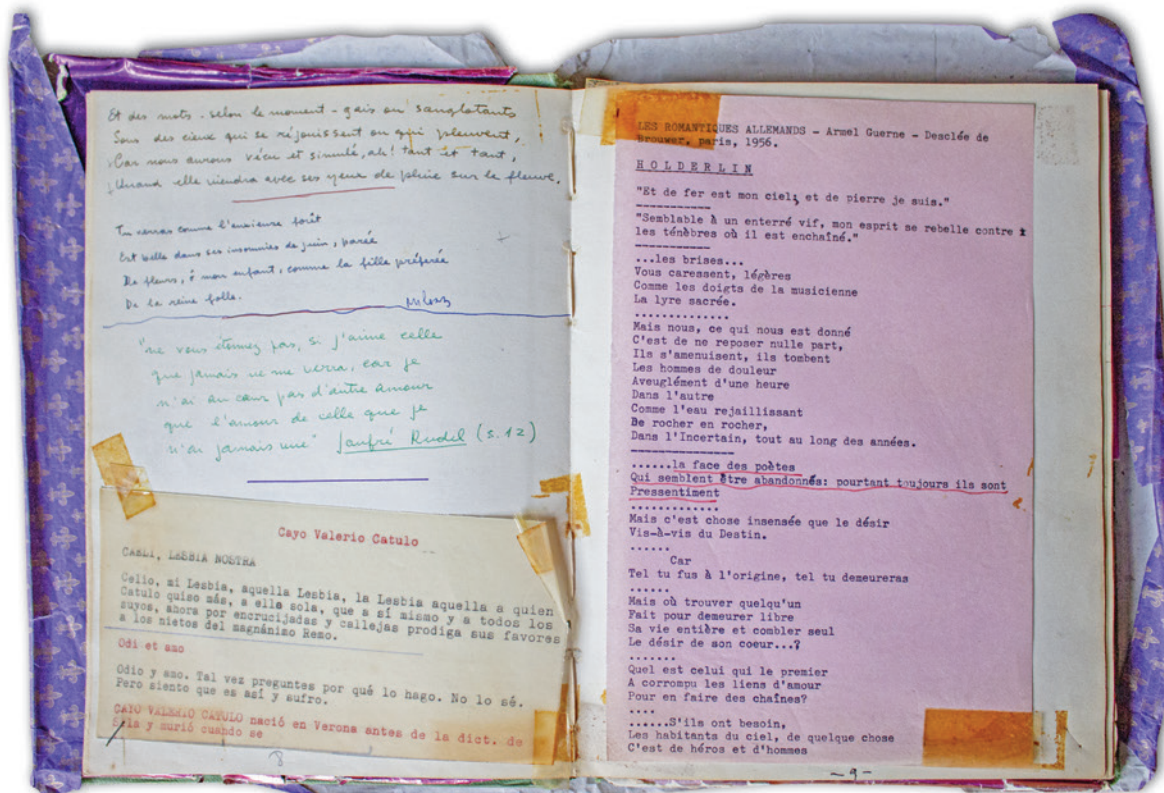 Et des mots - selon le moment - gais ou sanglotants
Sous des cieux qui se réjouissent ou qui pleuvent,
Car nous aurons vécu et simulé, ah! tant et tant,
Quand elle viendra avec ses yeux de pluie sur le fleuve.
Tu verras comme l'ancienne forêt
Est belle dans ses insomnies de juin, parée
De fleurs, ô mon enfant, comme la fille préferée
De la reine folle.
Milosz
"ne vous étonnez pas, si j'aime celle
que jamais ne me verra, car je
n'ai au cœur pas d'autre amour
que l'amour de celle que je
n'ai jamais vue" Jaufré Rudel (s. 12)
Cayo Valerio Catulo
CAELI, LESBIA NOSTRA
Celio, mi Lesbia, aquella Lesbia, la Lesbia aquella a quien
Catulo quiso más, a ella sola, que a sí mismo y a todos los
suyos, ahora por encrucijadas y callejas prodiga sus favores
a los nietos del magnánimo Remo.
Odi et amo
Odio y amo. Tal vez preguntes por qué lo hago. No lo sé.
Pero siento que es así y sufro.
CAYO VALERIO CATULO nació en Verona antes de la dict. de
Sila y murió cuando se
8
LES ROMANTIQUES ALLEMANDS - Armel Guerne - Desclée de
Brouwer, paris, 1956.
HOLDERLIN
"Et de fer est mon ciel; et de pierre je suis."
-----------
"Semblable à un enterré vif, mon esprit se rebelle contre
les ténèbres où il est enchaîné."
-----------
...les brises...
Vous caressent, légères
Comme les doigts de la musicienne
La lyre sacrée.
..............
Mais nous, ce qui nous est donné
C'est de ne reposer nulle part,
Ils s'amenuisent, ils tombent
Les hommes de douleur
Aveuglément d'une heure
Dans l'autre
Comme l'eau rejaillissant
De rocher en rocher,
Dans l'Incertain, tout au long des années.
---------------
......la face des poètes
Qui semblent être abandonnés: pourtant toujours ils sont
Pressentiment
.............
Mais c'est chose insensée que le désir
Vis-à-vis du Destin.
......
Car
Tel tu fus à l'origine, tel tu demeureras
......
Mais où trouver quelqu'un
Fait pour demeurer libre
Sa vie entière et combler seul
Le désir de son coeur...?
.......
Quel est celui qui le premier
A corrompu les liens d'amour
Pour en faire des chaînes?
....
......S'ils ont besoin,
Les habitants du ciel, de quelque chose
C'est de héros et d'hommes
-9-